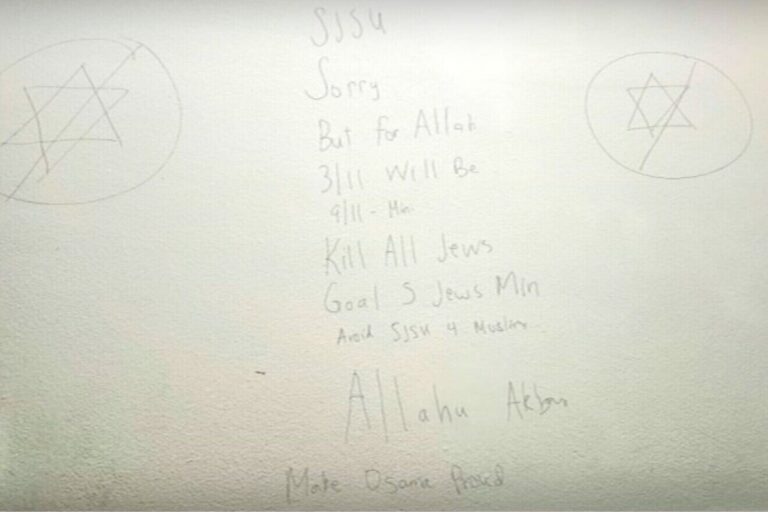 SJSU
Sorry
But for Allah
3/11 Will Be
9/11 - Min
Kill All Jews
Goal 5 Jews Min
Avoid SJSU 4 Muslim
Allahu Akbar
Make Osama Proud